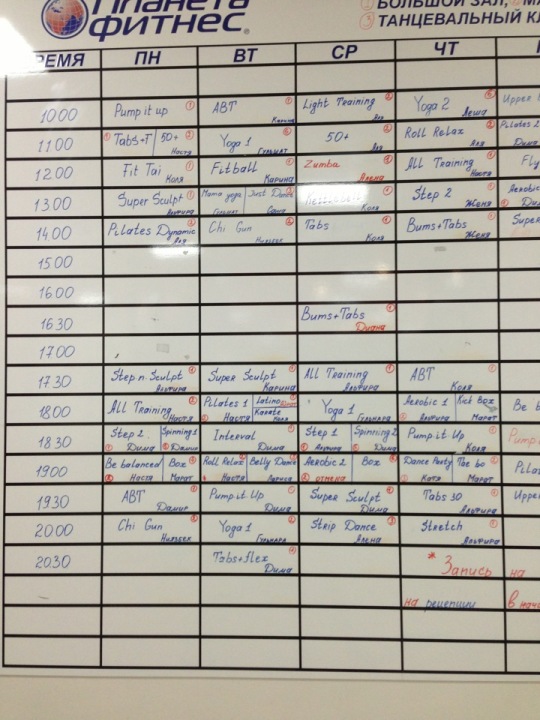 Планета
фитнес®
① БОЛЬШОЙ ЗАЛ,
③ ТАНЦЕВАЛЬНЫЙ КЛ
РЕМЯ ПН ВТ СР ЧТ
1000 Pump it up ① ABT ① Карина Light Training ② Ася Yoga 2 Леша Upper
1100 Tabs+T 50+ ② Настя Yoga 1 50+ ② Ася Roll Relax Ася Pilates Дима
1200 Fit Tai ① Коля Fitball ① Марина Zumba ① Алена All Training ① Настя Fly
1300 Super Sculpt ① Альфира Mama yoga Just Dance Саша Коля Step 2 ① Женя Aerobic Дим
1400 Pilates Dynamic Ася Chi Gun ② Ниязбек Tabs ① Коля Bums+Tabs ① Женя Super
1500
1600
1630 Bums+Tabs ① Диана
1700
1730 Step n Sculpt ① Альфира Super Sculpt ① Карина All Training ① Альфира ABT Коля
1800 All Training Настя Pilates 1 Настя Latino Karate Коля Yoga 1 Гульнара Aerobic 1 Альфира Kick Box Марат Be b
1830 Step 2 ① Дима Spinning 1 Дамир Interval Дима Step 1 ① Альфира Spinning 2 Дима Pump it Up Коля Pump
1900 Be balanced Настя Box Марат Roll Relax Настя Belly Dance Лариса Aerobic 2 отмена Box Dance Party Катя Tae bo Марат Pila
1930 ABT ① Дамир Pump it Up ① Дима Super Sculpt ① Дима Tabs 30 Альфира Upper
2000 Chi Gun ② Ниязбек Yoga 1 ② Гульнара Strip Dance ③ Алена Stretch Альфира
2030 Tabs+flex Дима * Запись на
на рецепции в нача